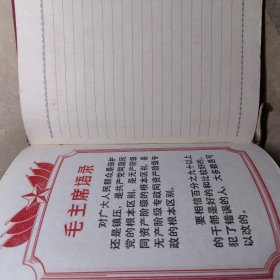 毛主席语录
对广大人民群众是保护
还是镇压，是共产党同国民
党的根本区别，是无产阶级
同资产阶级的根本区别，是
无产阶级专政同资产阶级专
政的根本区别。
要相信百分之九十以上
的干部是好的和比较好的。
犯了错误的人，大多数是可
以改的。